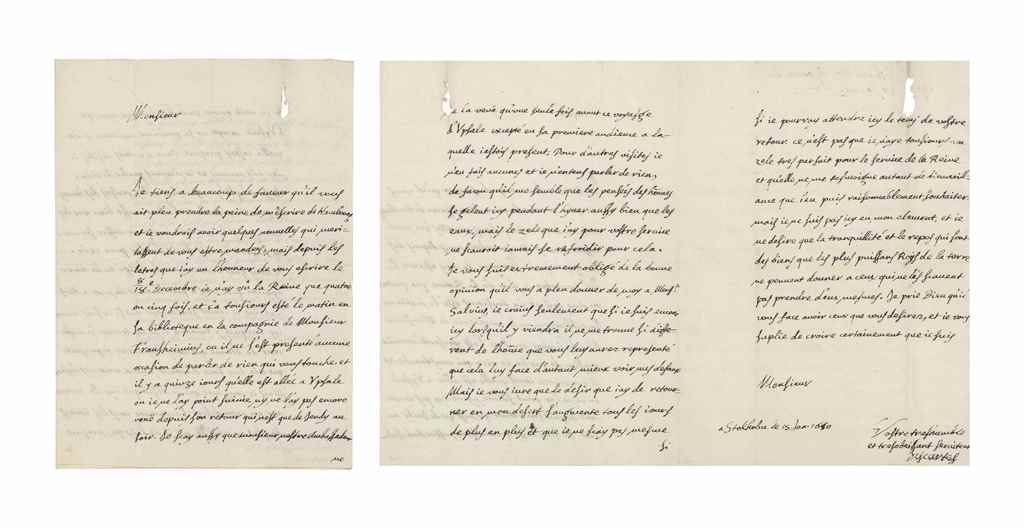 Monsieur
Je tiens a beaucoup de faueur qu'il vous
ait pleu prendre la peine de m'escrire de
et ie voudrois auoir quelques nouuelles qui meri-
tassent de vous estre mandées, mais depuis les
letres que i'ay eu l'honneur de vous escrire le
Decembre ie n'ay vû la Reine que quatre
ou cinq fois, et ç'a tousiours esté le matin en
sa biblioteque en la compagnie de Monsieur
Fransheimius, ou il ne s'est presenté aucune
ocasion de parler de rien qui vous touche. et
il y a quinze iours qu'elle est allée a Vpsale
ou ie ne l'ay point suiuie, ny ne l'ay pas encore
veuë depuis son retour qui n'est que de Ieudy au
soir. Ie sçay aussy que monsieur nostre Ambassadeur
ne
l'a veuë qu'vne seule fois auant ce voyasge
d'Vpsale excepté en sa premiere audience a la-
quelle i'estois present. Pour d'autres visites ie
n'en fais aucunes et ie n'entens parler de rien,
de facon qu'il me semble que les pensées des hommes
se gelent icy pendant l'hyuer aussy bien que les
eaux, mais le zele que i'ay pour vostre seruice
ne sçauroit iamais se refroidir pour cela.
Ie vous suis extremement obligé de la bonne
opinion qu'il vous a pleu donner de moy a Monsr
Saluius, ie crains seulement que si ie suis encore
icy lorsqu'il y viendra il ne me trouue si diffe-
rent de l'hõme que vous luy aurez representé
que cela luy face d'autant mieux voir mes defauts
Mais ie vous iure que le desir que i'ay de retour-
ner en mon desert s'augmente tous les iours
de plus en plus et que ie ne sçay pas mesme
si
si ie pourray attendre icy le tems de vostre
retour. ce n'est pas que ie n'aye tousiours un
zele tres parfait pour le seruice de la Reine
et qu'elle ne me tesmoigne autant de bienueill-
ance que i'en puis raisonnablement souhaiter.
mais ie ne suis pas icy en mon element, et ie
ne desire que la tranquillité et le repos qui sont
des biens que les plus puissans Roys de la terre
ne peuuent donner a ceux qui ne les sçauent
pas prendre d'eux mesmes. Ie prie Dieu qu'il
vous face auoir ceux que vous desirez, et ie vous
suplie de croire certainement que ie suis
Monsieur
a Stokholm le 15 Ian. 1650
Vostre treshumble
et tresobeissant seruiteur
Descartes